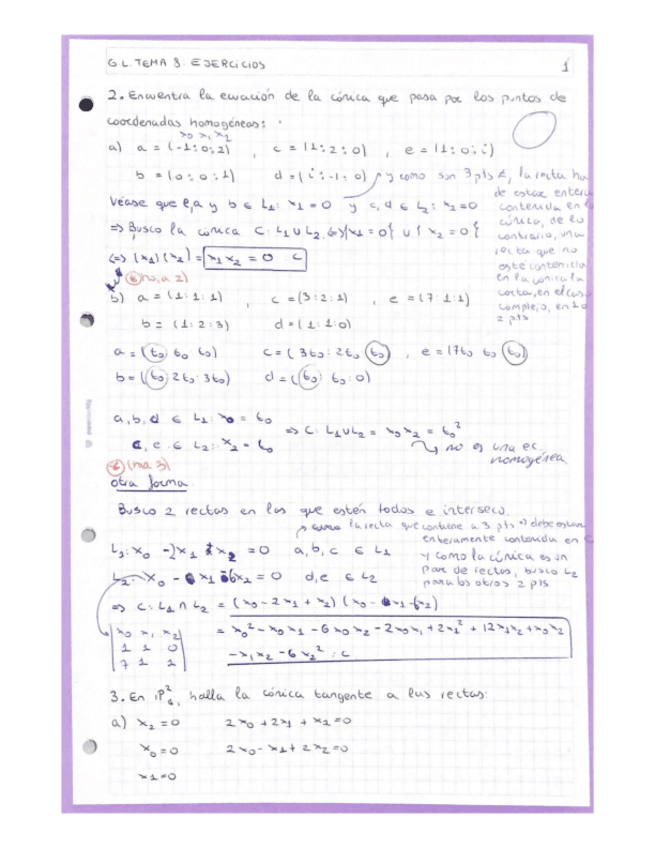 G L. TEMA 8. EJERCICIOS 1
2. Encuentra la ecuación de la cónica que pasa por los puntos de
coordenadas homogéneas:
x0 x1 x2
a) a = (-1:0:2) , c = (1:2:0) , e = (1:0:i)
b = (0:0:1) d = (i:-1:0) y como son 3 pts ≠, la recta ha
de estar entera
contenida en la
cónica, de lo
contrario, una
recta que no
esté contenida
en la cónica la
corta, en el caso
complejo, en 1 o
2 pts
Véase que e, a y b ∈ L1: x1 = 0 y c, d ∈ L2: x2 = 0
=> Busco la cónica C: L1 ∪ L2 <=> {x1 = 0} ∪ {x2 = 0}
<=> (x1)(x2) = x1 x2 = 0 C
b) a = (1:1:1) , c = (3:2:1) , e = (7:1:1)
b = (1:2:3) d = (1:1:0)
a = (t0: t0 t0) c = (3t0: 2t0, t0) , e = (7t0 t0 t0)
b = (t0 2t0: 3t0) d = (t0: t0: 0)
a, b, d ∈ L1: x0 = t0
=> C: L1 ∪ L2 = x0 x2 = t0²
c, e ∈ L2: x2 = t0
no es una ec.
homogénea.
otra forma.
Busco 2 rectas en las que estén todos e interseco.
la recta que contiene a 3 pts => debe estar
enteramente contenida en C
y como la cónica es un
par de rectas, busco L2
para los otros 2 pts
L1: x0 - 2x1 + x2 = 0 a, b, c ∈ L1
L2: x0 - x1 - 6x2 = 0 d, e ∈ L2
=> C: L1 ∩ L2 = (x0 - 2x1 + x2) (x0 - x1 - 6x2)
x0 x1 x2
1 1 0
7 1 1
= x0² - x0x1 - 6x0x2 - 2x0x1 + 2x1² + 12x1x2 + x0x2
- x1x2 - 6x2² : C
3. En P², halla la cónica tangente a las rectas:
a) x2 = 0 2x0 + 2x1 + x2 = 0
x0 = 0 2x0 - x1 + 2x2 = 0
x1 = 0